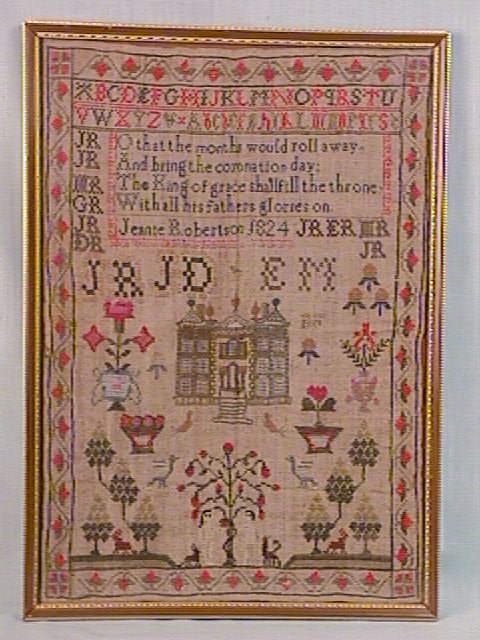 ABCDEFGHIJKLMNOPQRSTU
VWXYZ
JR O that the months would roll away
JR And bring the cornation day;
MR The King of grace shall fill the throne,
GR With all his fathers glories on
JR Jeante Robertson 1824 JR ER MR
DR JR
JR JD EM